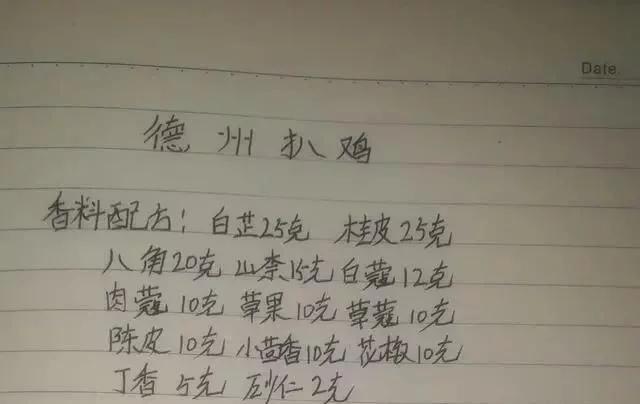 Date.
德州扒鸡
香料配方: 白芷25克 桂皮25克
八角20克 山柰15克 白蔻12克
肉蔻10克 草果10克 草蔻10克
陈皮10克 小茴香10克 花椒10克
丁香5克 砂仁2克